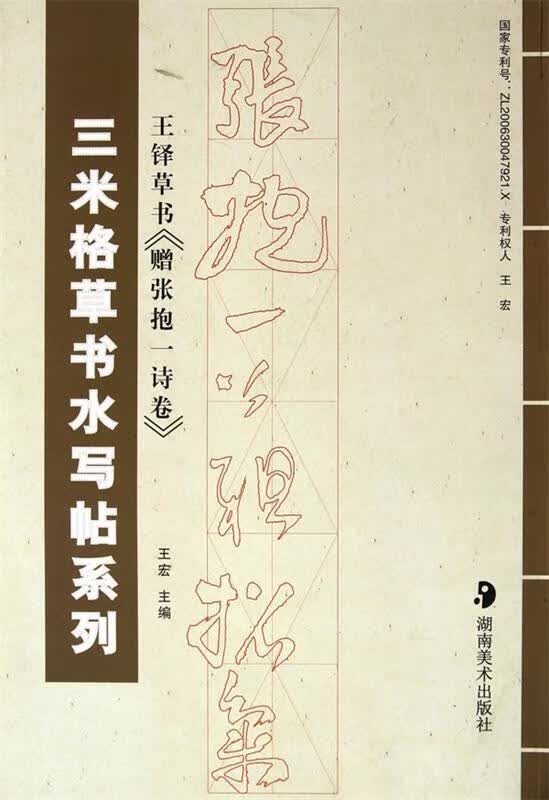 三米格草书水写帖系列
王铎草书《赠张抱一诗卷》
王宏 主编
国家专利号：ZL200630047921.X 专利权人 王宏
湖南美术出版社